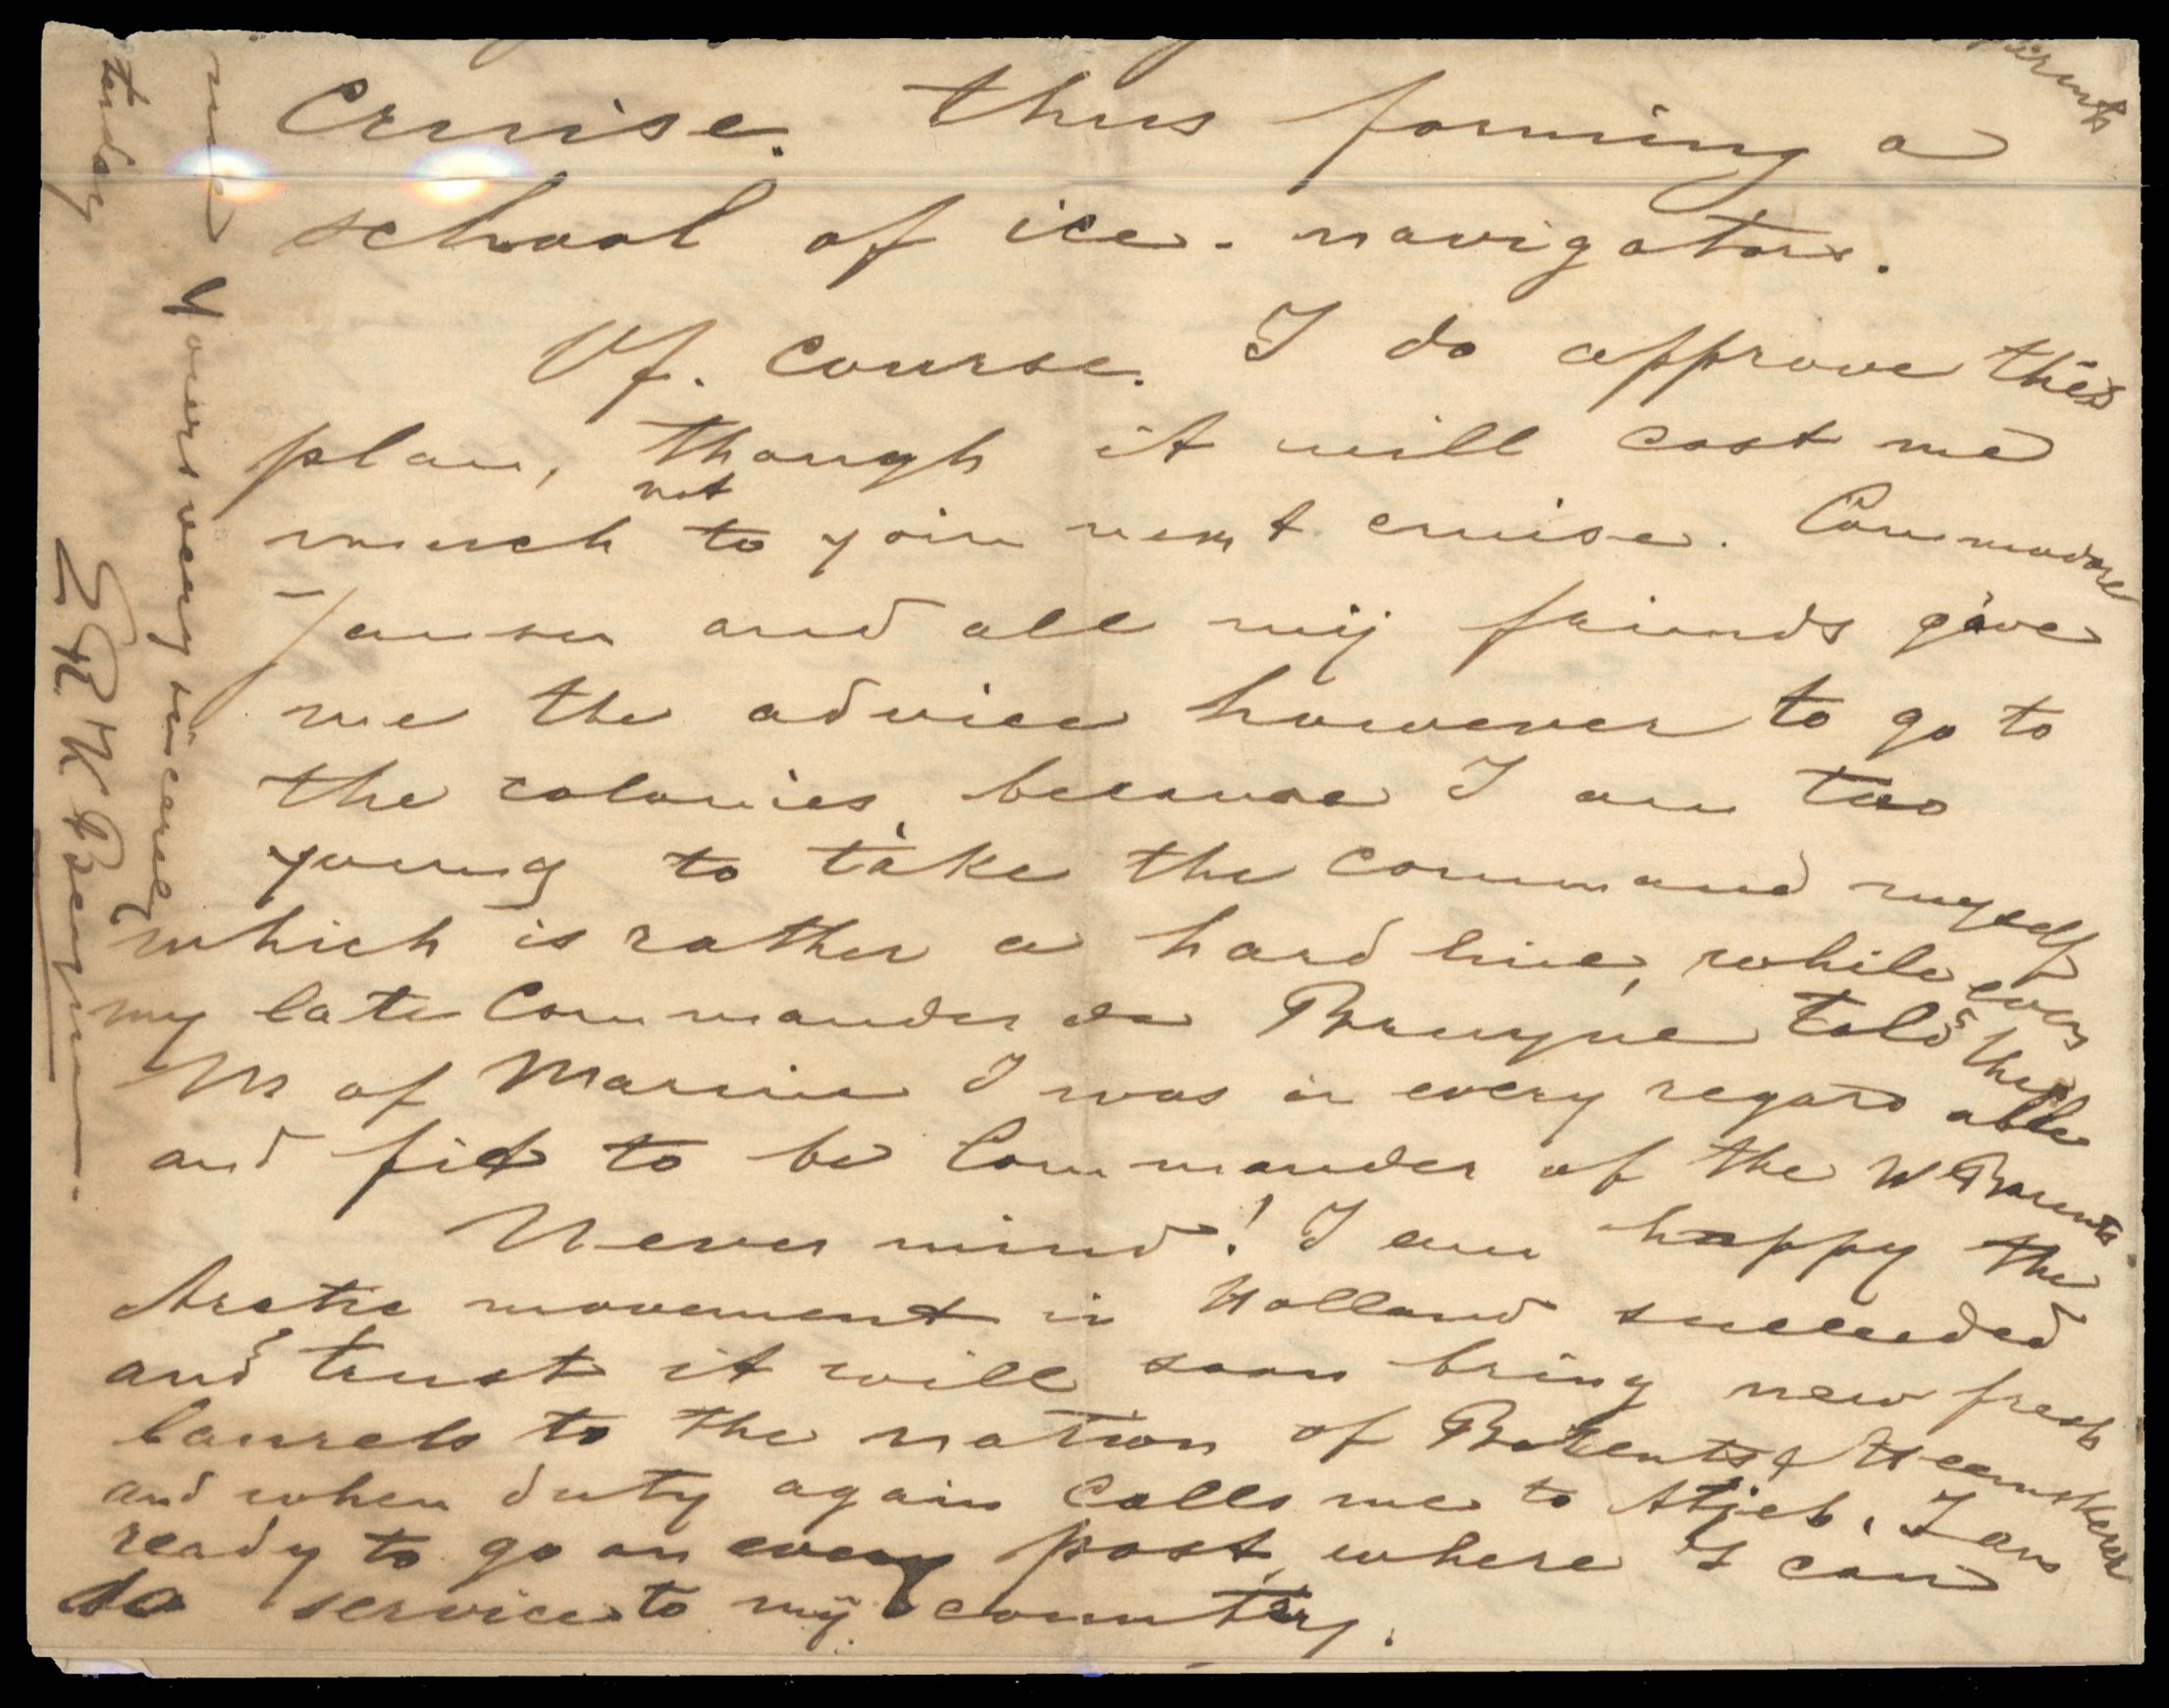 cruise. thus forming a
school of ice-navigators.
Of. course. I do approve this
plan, though it will cost me
not
much to yoin next cruise. Commodore
Jansen and all mij friends gave
me the advice however to go to
the colonies, because I am too
young to take the command myself
which is rather a hard line, while even
my late Commander de Bruyne told the
M of Marine I was in every regard able
and fit to be Commander of the W Barents.
Never mind! I am happy the
Arctic movement in Holland succeeded
and trust it will soon bring new fresh
laurels to the nation of Barents & Heemskerk
and when duty again calls me to Atjeh, I am
ready to go on every post, where I can
do service to mij country.
Yours very sincerely
truly
L R K Beynen.